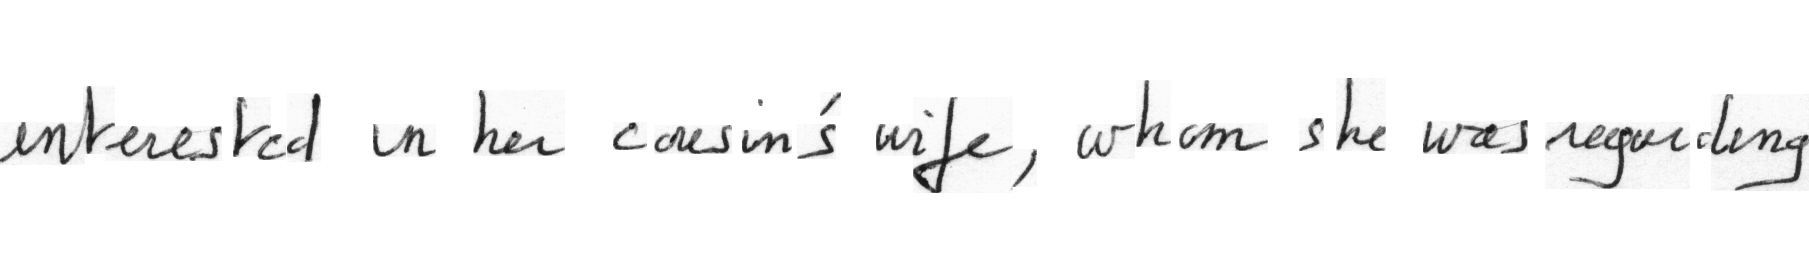 interested in her cousin's wife, whom she was regarding